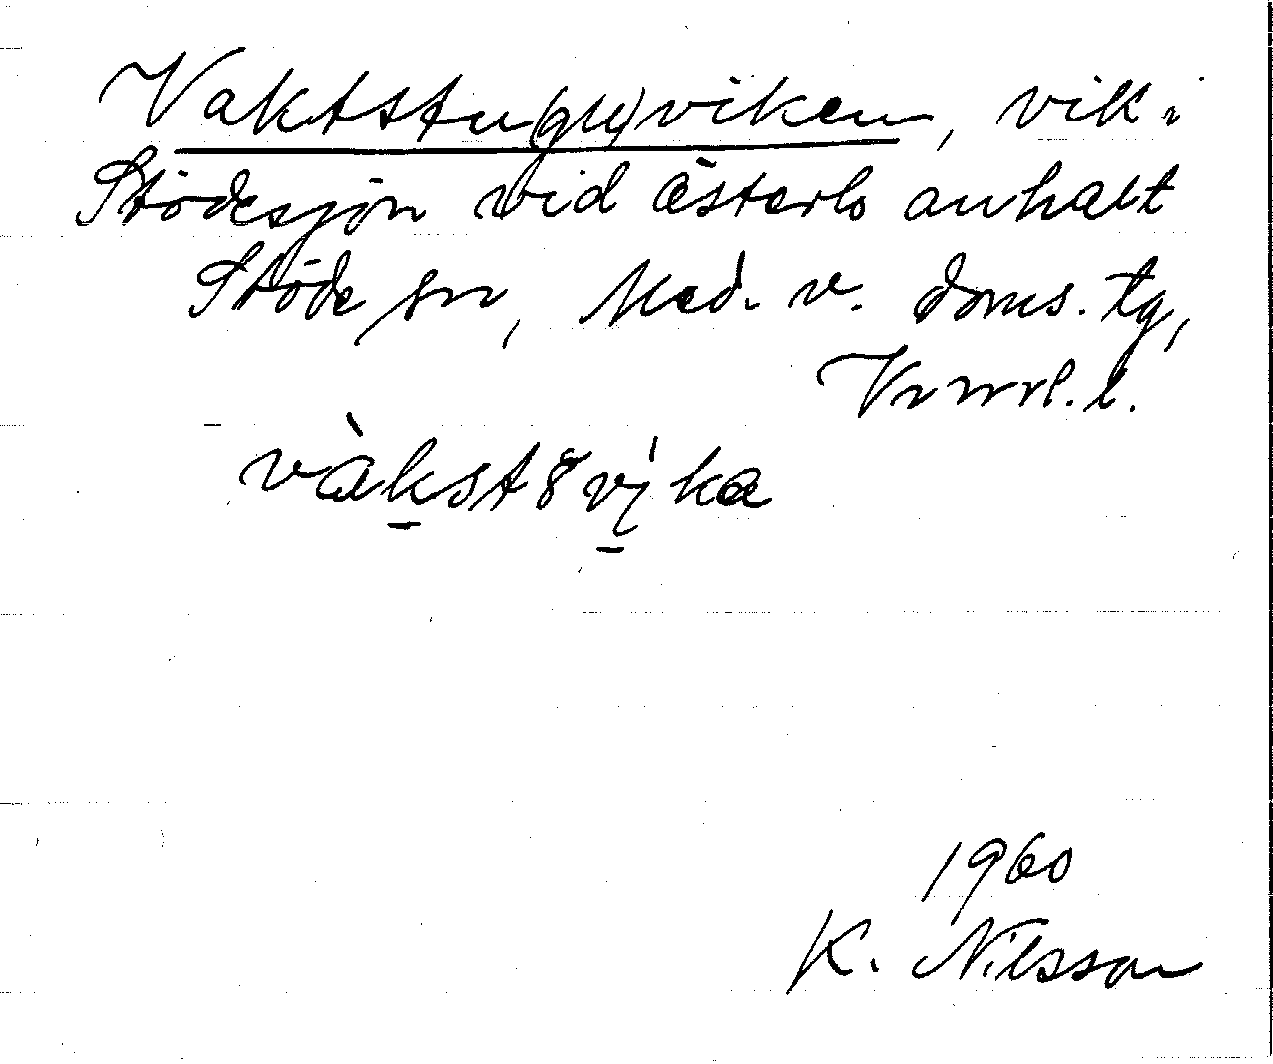 Vaktstu(gu)viken, vik i
Stödesjön vid Österlo anhalt
Stöde sn, Med. v. doms. tg,
Vnrrl. l.
vàkst8vı̣́ka
1960
K. Nilsson